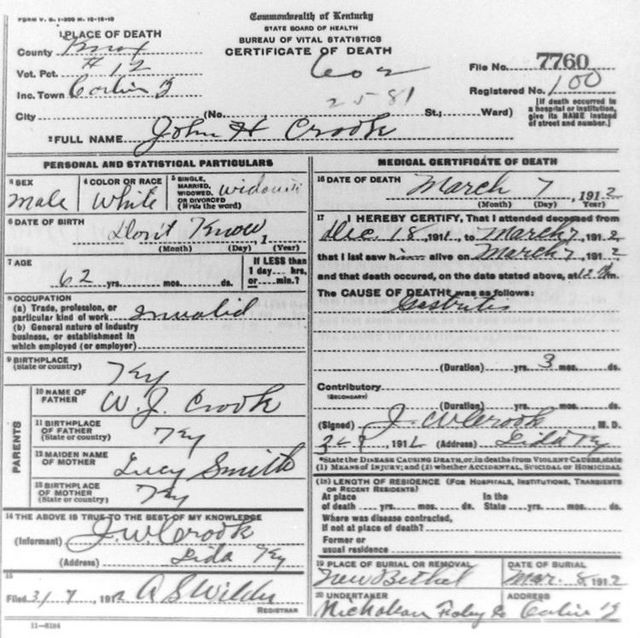 FORM V. S. 1-200 M. 12-15-10
Commonwealth of Kentucky
STATE BOARD OF HEALTH
BUREAU OF VITAL STATISTICS
CERTIFICATE OF DEATH
1 PLACE OF DEATH
County Knox
Vot. Pct. # 12
Inc. Town
City (No. St.; Ward)
2581
File No. 7760
Registered No. 100
[If death occurred in a hospital or institution, give its NAME instead of street and number.]
2 FULL NAME John H Crook
PERSONAL AND STATISTICAL PARTICULARS
3 SEX Male
4 COLOR OR RACE White
5 SINGLE, MARRIED, WIDOWED, OR DIVORCED (Write the word)
6 DATE OF BIRTH Don't Know, 1
(Month) (Day) (Year)
7 AGE 62 yrs. mos. ds.
If LESS than 1 day hrs. or min.?
8 OCCUPATION
(a) Trade, profession, or particular kind of work Invalid
(b) General nature of industry business, or establishment in which employed (or employer)
9 BIRTHPLACE (State or country) Ky
PARENTS
10 NAME OF FATHER W. J. Crook
11 BIRTHPLACE OF FATHER (State or country) Ky
12 MAIDEN NAME OF MOTHER Lucy Smith
13 BIRTHPLACE OF MOTHER (State or country) Ky
14 THE ABOVE IS TRUE TO THE BEST OF MY KNOWLEDGE
(Informant) J. W. Crook
(Address) Lida Ky
15
Filed 3/7, 1912 A S Wilder
REGISTRAR
11-6184
MEDICAL CERTIFICATE OF DEATH
16 DATE OF DEATH March 7, 1912
(Month) (Day) (Year)
17 I HEREBY CERTIFY, That I attended deceased from
Dec. 18, 1911, to March 7, 1912
that I last saw him alive on March 7, 1912
and that death occured, on the date stated above, at 12 m.
The CAUSE OF DEATH was as follows:
Gastritis
(Duration) yrs. 3 mos. ds.
Contributory
(SECONDARY)
(Duration) yrs. mos. ds.
(Signed) J. W. Crook M. D.
1912 (Address) Lida Ky
*State the DISEASE CAUSING DEATH, or, in deaths from VIOLENT CAUSES, state (1) MEANS OF INJURY; and (2) whether ACCIDENTAL, SUICIDAL or HOMICIDAL
(18) LENGTH OF RESIDENCE (FOR HOSPITALS, INSTITUTIONS, TRANSIENTS OR RECENT RESIDENTS)
At place of death yrs. mos. ds.
In the State yrs. mos. ds.
Where was disease contracted, if not at place of death?
Former or usual residence
19 PLACE OF BURIAL OR REMOVAL New Bethel
DATE OF BURIAL Mar. 8, 1912
20 UNDERTAKER
ADDRESS